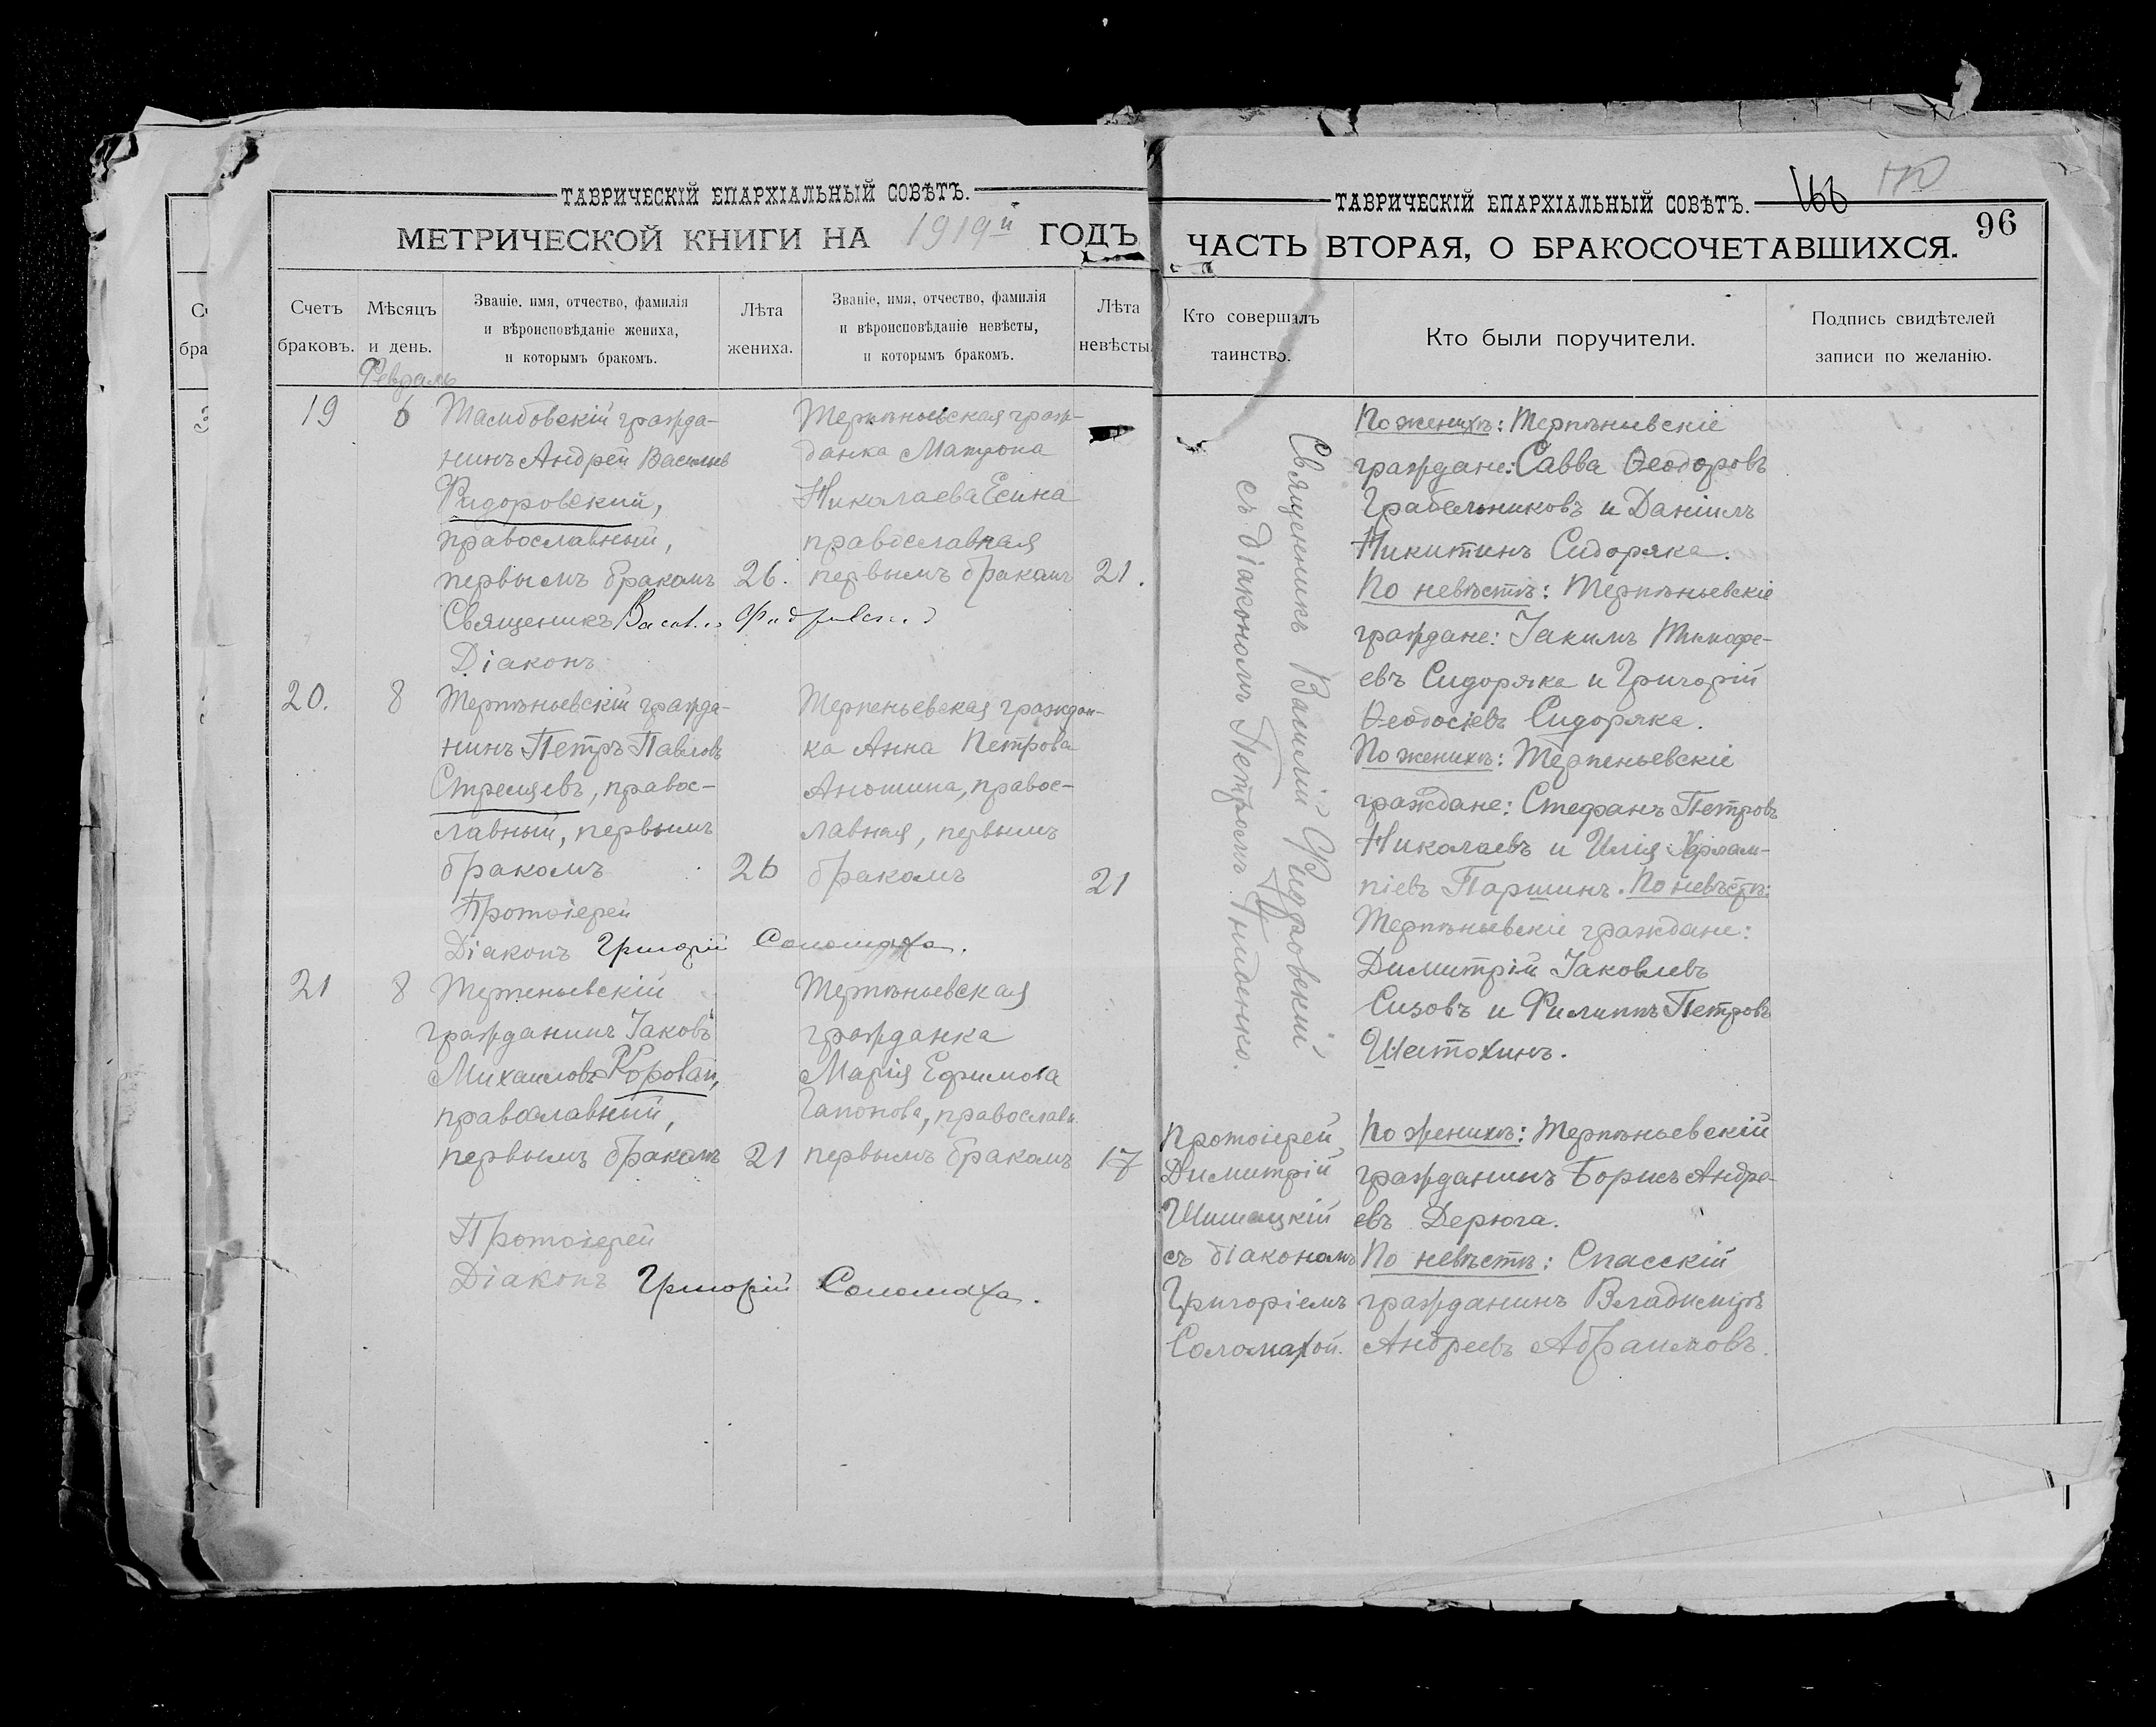 ТАВРИЧЕСКІЙ ЕПАРХІАЛЬНЫЙ СОВѢТЪ.
МЕТРИЧЕСКОЙ КНИГИ НА 1919й ГОДЪ
Счетъ браковъ.
Мѣсяцъ и день.
Званіе, имя, отчество, фамилія
и вѣроисповѣданіе жениха,
и которымъ бракомъ.
Лѣта жениха.
Званіе, имя, отчество, фамилія
и вѣроисповѣданіе невѣсты,
и которымъ бракомъ.
Лѣта невѣсты
Февраль
19 6 Тамбовскій гражда-
нинъ Андрей Васильев
Фидоровский,
православный,
первымъ бракомъ 26.
Терпѣньевская граж-
данка Матрона
Николаева Есина
православная
первымъ бракомъ 21.
Священикъ
Діаконъ
20. 8 Терпѣньевскій гражда-
нинъ Петръ Павловъ
Стрельцевъ, правос-
лавный, первымъ
бракомъ 26
Терпеньевская граждан-
ка Анна Петрова
Аношина, правос-
лавная, первымъ
бракомъ 21
Протоіерей
Діаконъ Григорій Соломаха.
21 8 Терпеньевскій
гражданинъ Іаковъ
Михаиловъ Коровай,
православный,
первымъ бракомъ 21
Терпѣньевская
гражданка
Марія Ефимова
Гапонова, православн.
первымъ бракомъ 17
Протоіерей
Діаконъ Григорій Соломаха.
ТАВРИЧЕСКІЙ ЕПАРХІАЛЬНЫЙ СОВѢТЪ.
166
96
ЧАСТЬ ВТОРАЯ, О БРАКОСОЧЕТАВШИХСЯ.
Кто совершалъ
таинство.
Кто были поручители.
Подпись свидѣтелей
записи по желанію.
Священникъ Василій Фидровскій
съ діакономъ Петромъ
По женихѣ: Терпѣньевскіе
граждане: Савва Ѳеодоровъ
Грабельниковъ и Даніилъ
Никитинъ Сидоряка.
По невѣстѣ: Терпѣньевскіе
граждане: Іакимъ Тимофе-
евъ Сидоряка и Григорій
Ѳеодосіевъ Сидоряка.
По женихѣ: Терпеньевскіе
граждане: Стефанъ Петровъ
Николаевъ и Илія Харлам-
піевъ Паршинъ. По невѣстѣ:
Терпѣньевскіе граждане:
Димитрій Іаковлевъ
Сизовъ и Филиппъ Петровъ
Шатохинъ.
Протоіерей
Димитрій
Шишацкій
съ діакономъ
Григоріемъ
Соломахой.
По женихѣ: Терпѣньевскій
гражданинъ Борисъ Андре-
евъ Дерюга.
По невѣстѣ: Спасскій
гражданинъ Владимиръ
Андреевъ Абраимовъ.